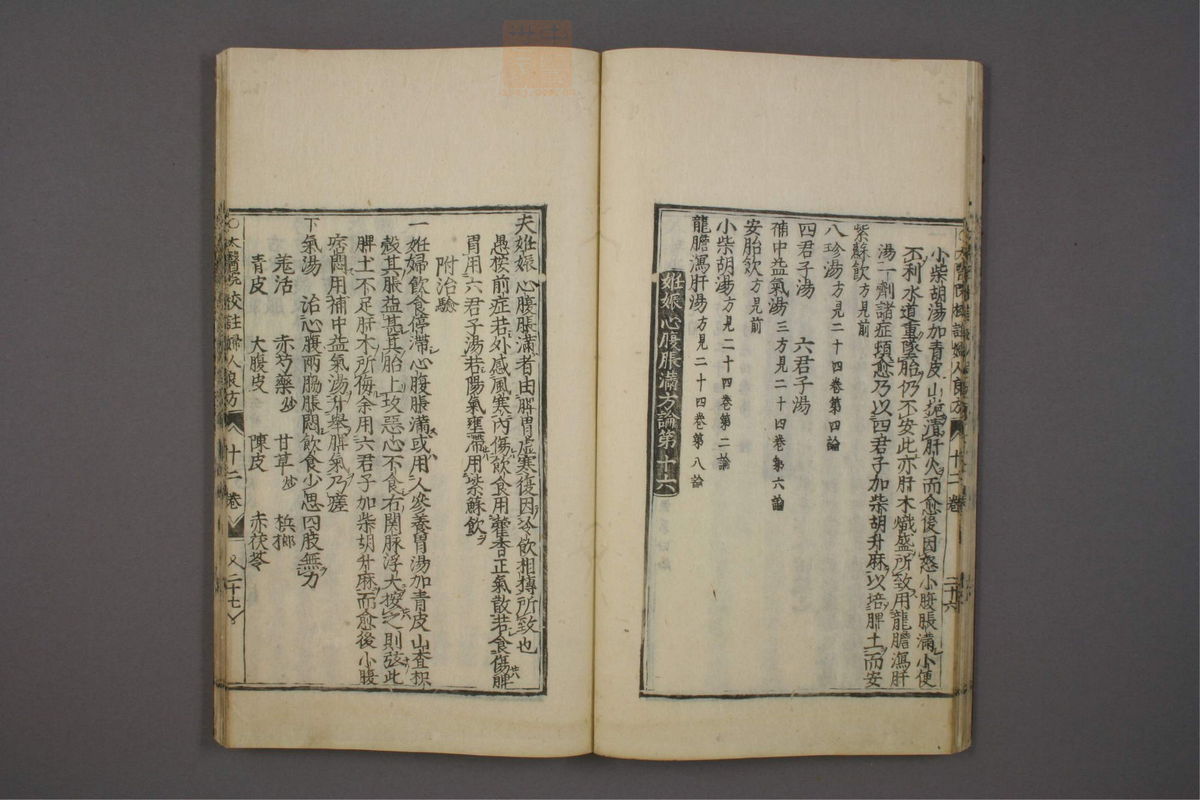 小柴胡湯加青皮山梔清肝火而愈後因怒小腹脹滿小便
不利水道重墜胎仍不安此亦肝木熾盛所致用龍膽瀉肝
湯一劑諸症頓愈乃以四君子加柴胡升麻以培脾土而安
紫蘇飲方見前
八珍湯方見二十四卷第四論
四君子湯　六君子湯
補中益氣湯三方見二十四卷第六論
安胎飲方見前
小柴胡湯方見二十四卷第二論
龍膽瀉肝湯方見二十四卷第八論
妊娠心腹脹滿方論第十六
二十六
夫妊娠心腹脹滿者由脾胃虛寒復因冷飲相摶所致也
愚按前症若外感風寒內傷飲食用藿香正氣散若食傷脾
胃用六君子湯若陽氣壅滯用紫蘇飲
附治驗
一妊婦飲食停滯心腹脹滿或用人參養胃湯加青皮山查枳
殼其脹益甚其胎上攻惡心不食右關脉浮大按之則弦此
脾土不足肝木所侮余用六君子加柴胡升麻而愈後小腹
痞悶用補中益氣湯升舉脾氣乃瘥
下氣湯　治心腹兩脇脹悶飲食少思四肢無力
羗活　赤芍藥炒　甘草炒　檳榔
青皮　大腹皮　陳皮　赤茯苓
○太醫院校註婦人良方　十二卷　又二十七